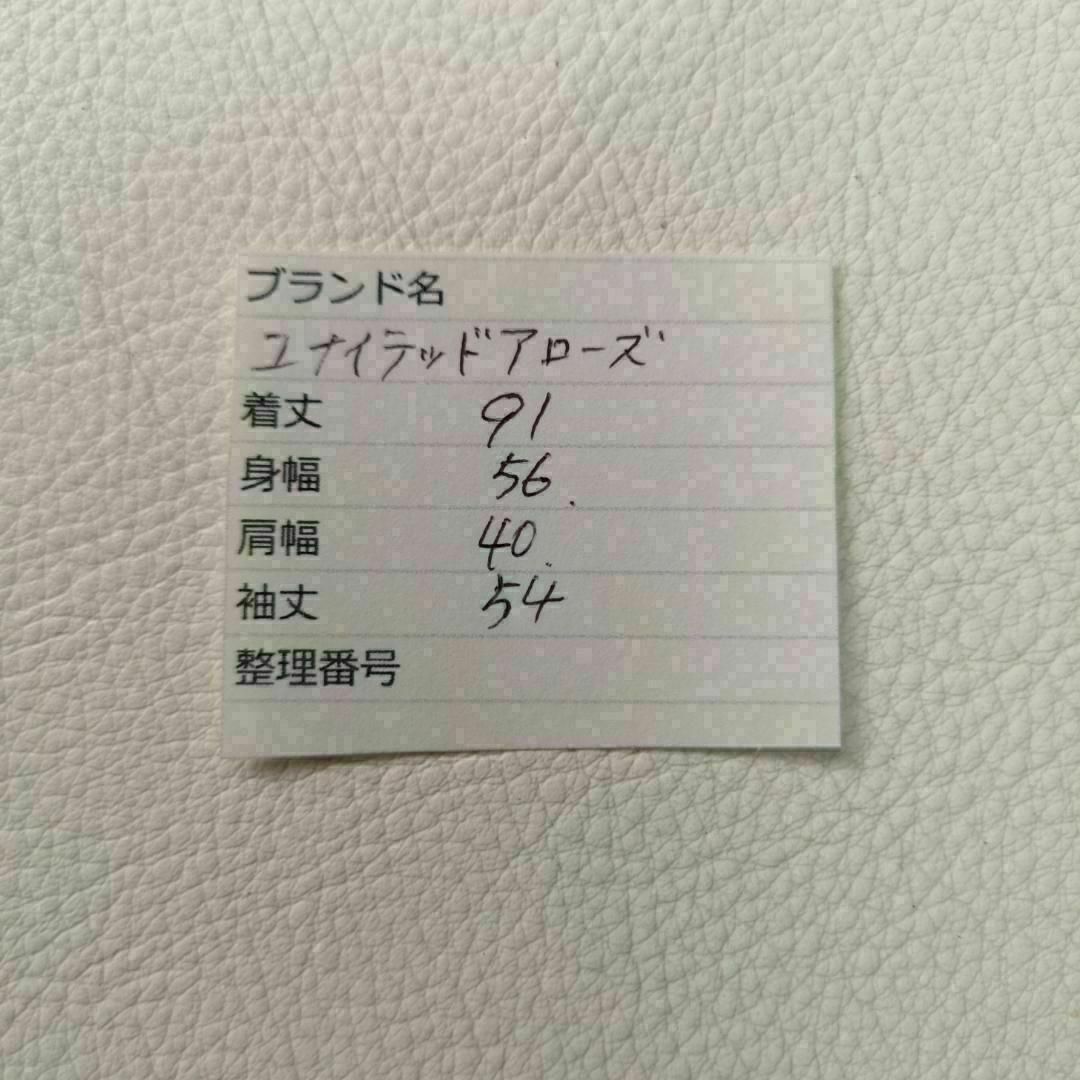 ブランド名
ユナイテッドアローズ
着丈 91
身幅 56
肩幅 40
袖丈 54
整理番号